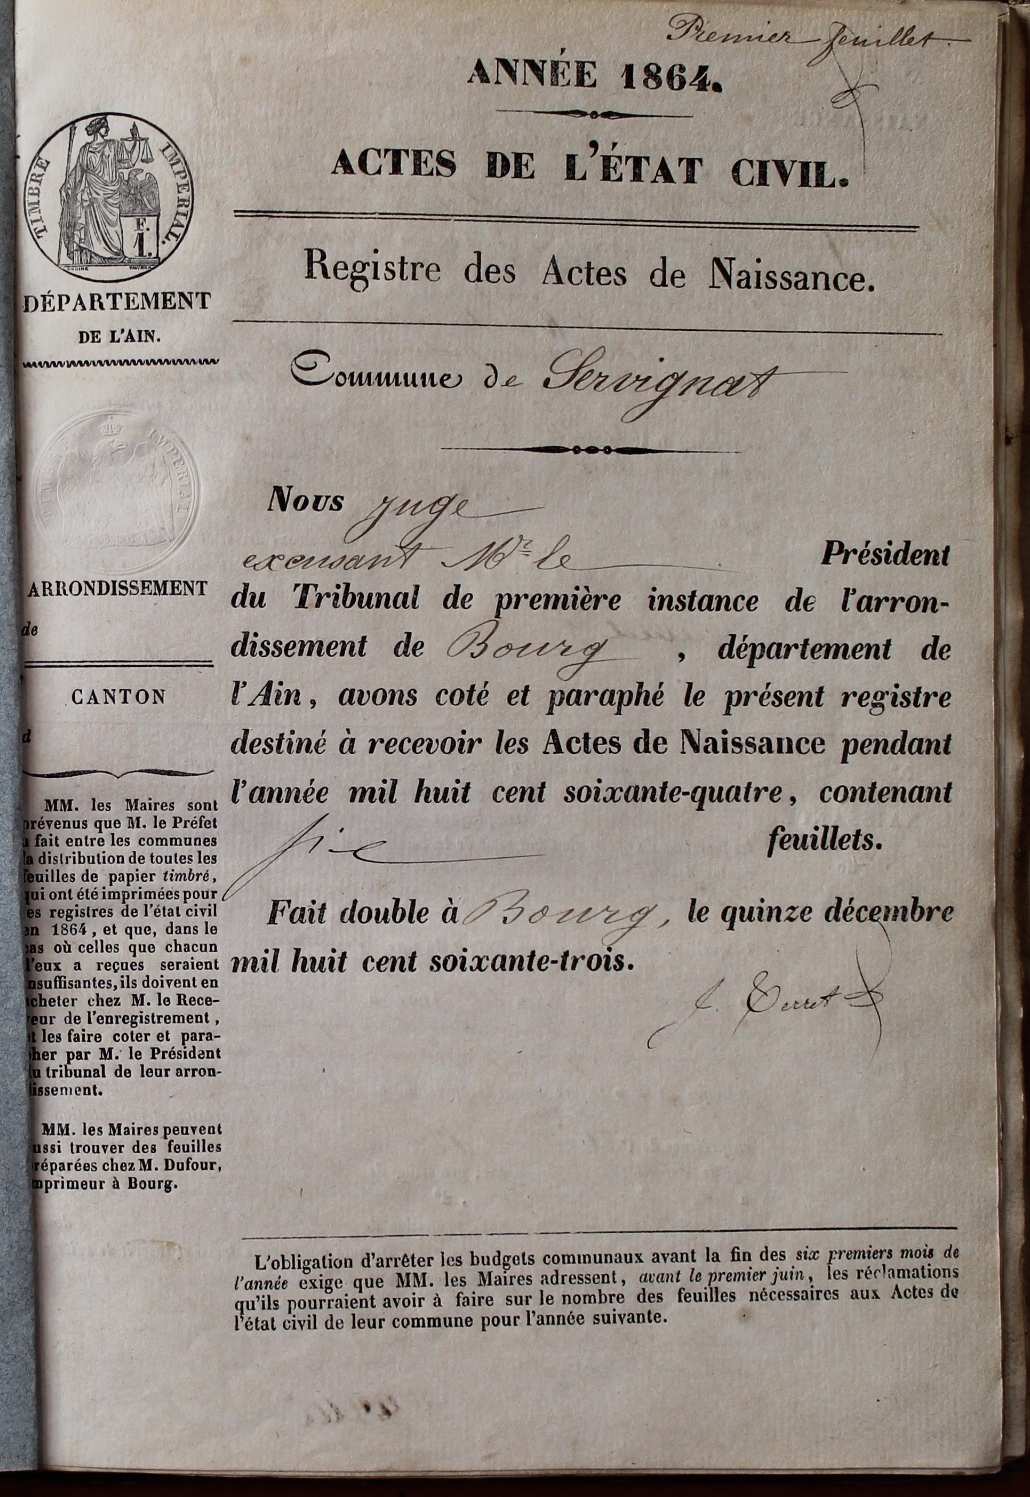 Premier feuillet
ANNÉE 1864.
ACTES DE L'ÉTAT CIVIL.
Registre des Actes de Naissance.
TIMBRE IMPERIAL.
F.
1.
DÉPARTEMENT
DE L'AIN.
Commune de Servignat
Nous juge
excusant Mr le Président
du Tribunal de première instance de l'arron-
dissement de Bourg, département de
l'Ain, avons coté et paraphé le présent registre
destiné à recevoir les Actes de Naissance pendant
l'année mil huit cent soixante-quatre, contenant
feuillets.
Fait double à Bourg, le quinze décembre
mil huit cent soixante-trois.
ARRONDISSEMENT
de
CANTON
d
MM. les Maires sont
prévenus que M. le Préfet
a fait entre les communes
la distribution de toutes les
feuilles de papier timbré,
qui ont été imprimées pour
les registres de l'état civil
en 1864, et que, dans le
cas où celles que chacun
d'eux a reçues seraient
insuffisantes, ils doivent en
acheter chez M. le Rece-
veur de l'enregistrement,
et les faire coter et para-
pher par M. le Président
du tribunal de leur arron-
dissement.
MM. les Maires peuvent
aussi trouver des feuilles
préparées chez M. Dufour,
imprimeur à Bourg.
L'obligation d'arrêter les budgets communaux avant la fin des six premiers mois de
l'année exige que MM. les Maires adressent, avant le premier juin, les réclamations
qu'ils pourraient avoir à faire sur le nombre des feuilles nécessaires aux Actes de
l'état civil de leur commune pour l'année suivante.